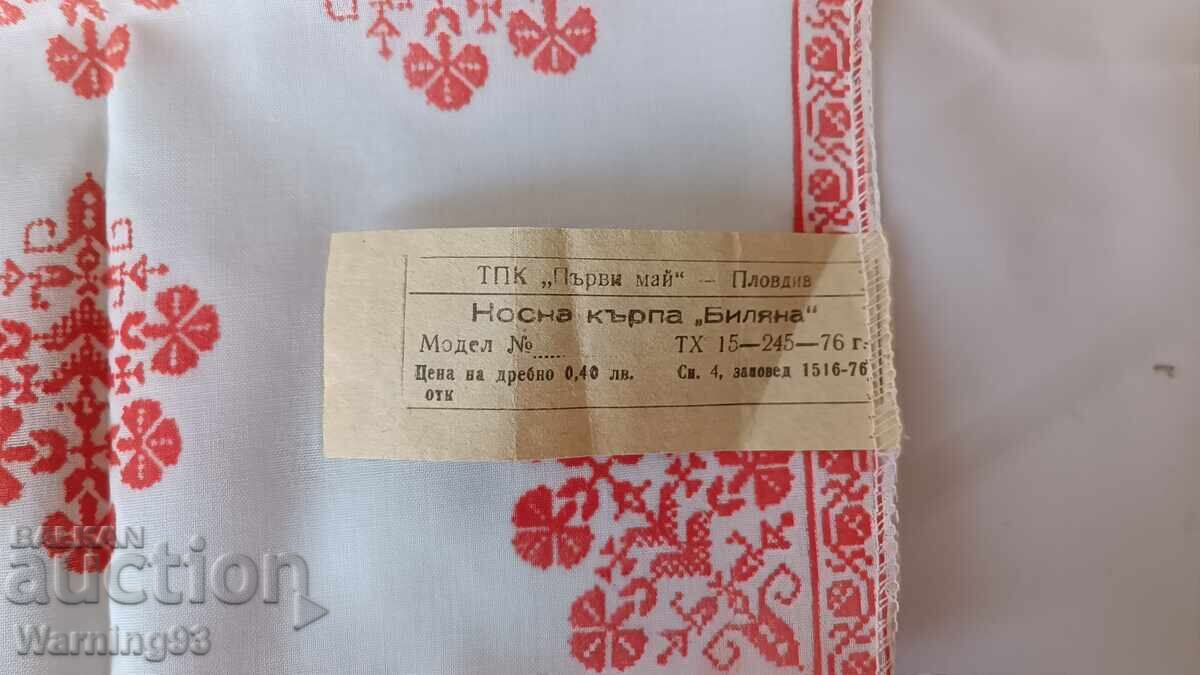 ТПК „Първи май“ — Пловдив
Носна кърпа „Биляна“
Модел № ..... ТХ 15—245—76 г.
Цена на дребно 0,40 лв. Сп. 4, заповед 1516-76
отк
BALKAN
auction
Warning93